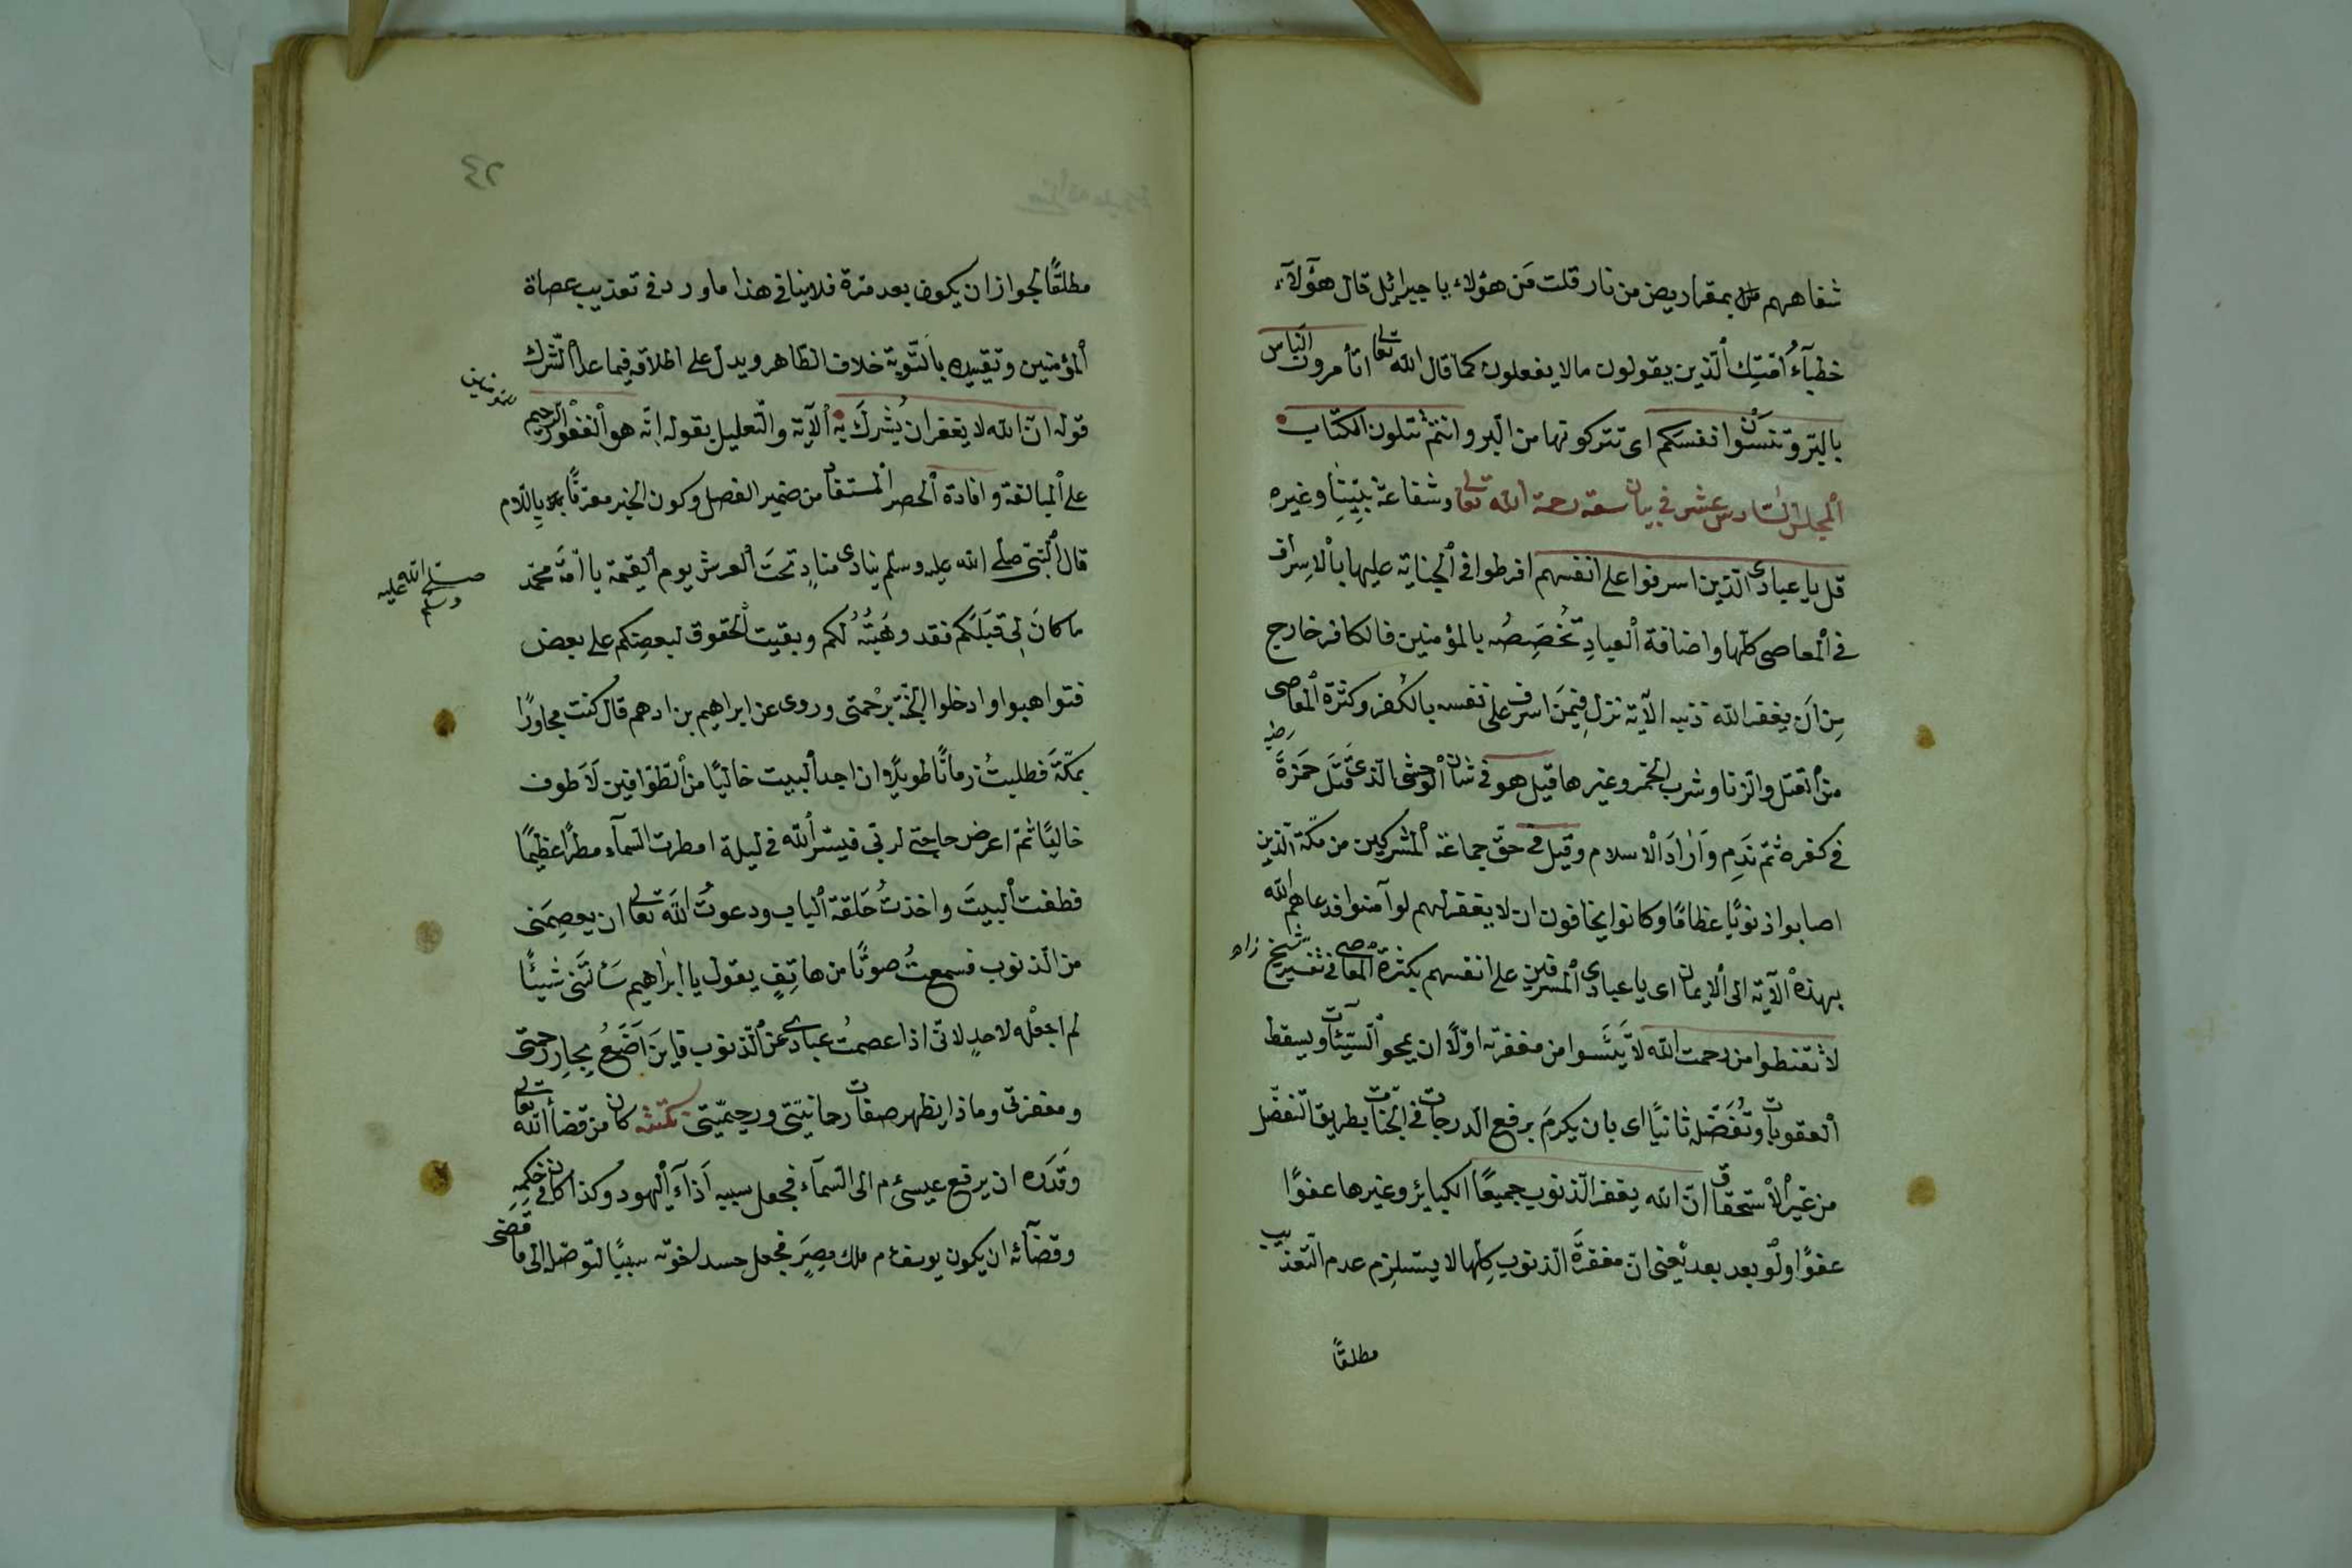 شفاههم بمقاريض من نار قلت مَن هؤلاء يا جبرائيل قال هؤلآء
خطبآءُ اُمّتِك ٱلّذين يقولون مالا يفعلون كما قال الله تعالى اتأمرون النّاس
بالبِرّ وتنسَوْن انفسكم اى تتركونها من البر وانتم تتلون الكتاب
ٱلمجلس السّادس عشر فى بيان سعة رحمة الله تعالى وشفاعة نبيّنا وغيره
قل يا عبادى الّذين اسرفوا على انفسهم افرطوا فى ٱلجناية عليها بٱلاسراف
فى ٱلمعاصى كلّها واضافة ٱلعبادِ تخصِصُه بالمؤمنين فالكافر خارج
مِن اَن يغفر الله ذنبه الآية نزل فِيمَن اسرف على نفسه بالكُفر وكثرة ٱلمعاصى
من ٱلقتل والزنا وشرب الخمر وغيرها قيل هو فى شان الوحشى الّذى قَتَل حَمزةَ رضه
فى كفره ثمّ نَدِم وَاَرادَ الاسلام وقيل فى حقّ جماعة ٱلمشركين من مكّة الّذين
اصابوا ذنوبًا عظامًا وكانوا يخافون ان لا يغفر لهم لو آمنوا فدعاهم الله
بهذه ٱلآية الى ٱلايمان اى يا عبادى ٱلمسرفين على انفسهم بكثرة ٱلمعاصى فى تفسير شيخ زاده
لا تقنطوا من رحمت الله لا تَيئَسوا من مغفرته اوّلاً ان يمحو ٱلسّيّئآت ويسقط
ٱلعقوبات وتُفَضّله ثانيًا اى بان يكرمَ برفع الدرجات فى الجنّات بطريق التفضّل
من غير ٱلاستحقاق انّ الله يغفر الذنوب جميعًا الكبائر وغيرها عفوًا
عفوًا ولَوْ بعد بعد يعنى ان مغفرَة الذنوب كلِّها لا يستلزم عدم التّعذيب
مطلقًا
٢٤
مطلقًا لجواز ان يكون بعد مرّة فلا ينافى هذا ما ورد فى تعذيب عصاة
ٱلمؤمنين وتقييده بالتّوبة خلاف الظاهر ويدلّ على اطلاقه فيما عدا ٱلشّرك
قوله انّ الله لا يغفر ان يُشركَ به ٱلآية والتّعليل بقوله انّه هو ٱلغفور الرّحيم
على ٱلمبالغة وافادة ٱلحصر ٱلمستفاد من ضمير الفصل وكون الخبر معرّفًا باللام
قال ٱلنّبىّ صلّى الله عليه وسلّم ينادى منادٍ تحتَ ٱلعرش يوم ٱلقيمة يا امّة محمّد
صلّى الله عليه وسلم
ما كانَ لِى قِبَلَكم فقد وَهَبْتُهُ لكم وبقيت ٱلحقوق لبعضِكم على بعض
فتواهبوا وادخلوا الجنّة برَحْمتى وروى عن ابراهيم بن ادهم قال كنت مجاورًا
بمكّة فطلبتُ زمانًا طويلاً ان اجد ٱلبيت خاليًا من ٱلطوّافين لاَطوف
خاليًا ثمّ اعرض حاجتى لربّى فيسّر ٱلله فى ليلة امطرت السّمآء مطرًا عظيمًا
فطفت ٱلبيتَ واخذتُ حَلقة ٱلباب ودعوتُ اللهَ تعالى ان يعصِمَنى
من الذنوب فسمعتُ صوتًا من هاتِفٍ يقول يا ابراهيم سَألتَنى شيئًا
لم اجعَلْه لاحدٍ لانّى اذا عصمتُ عبادى عن ٱلذنوب فاين اَضَعُ بحارَ رحمتى
ومغفرتى وماذا يظهر صفات رحمانيّتى ورحيميّتى كان من قضأ الله تعالى
وقَدَره ان يرفع عيسى م الى السّمآء فجعل سببه اَذآءَ اليَهود وكذا كان فى حُكمِه
وقضآئه ان يكون يوسف م ملك مِصرَ فجعل حسد اخوته سببًا لتوصّله الى ما قضى